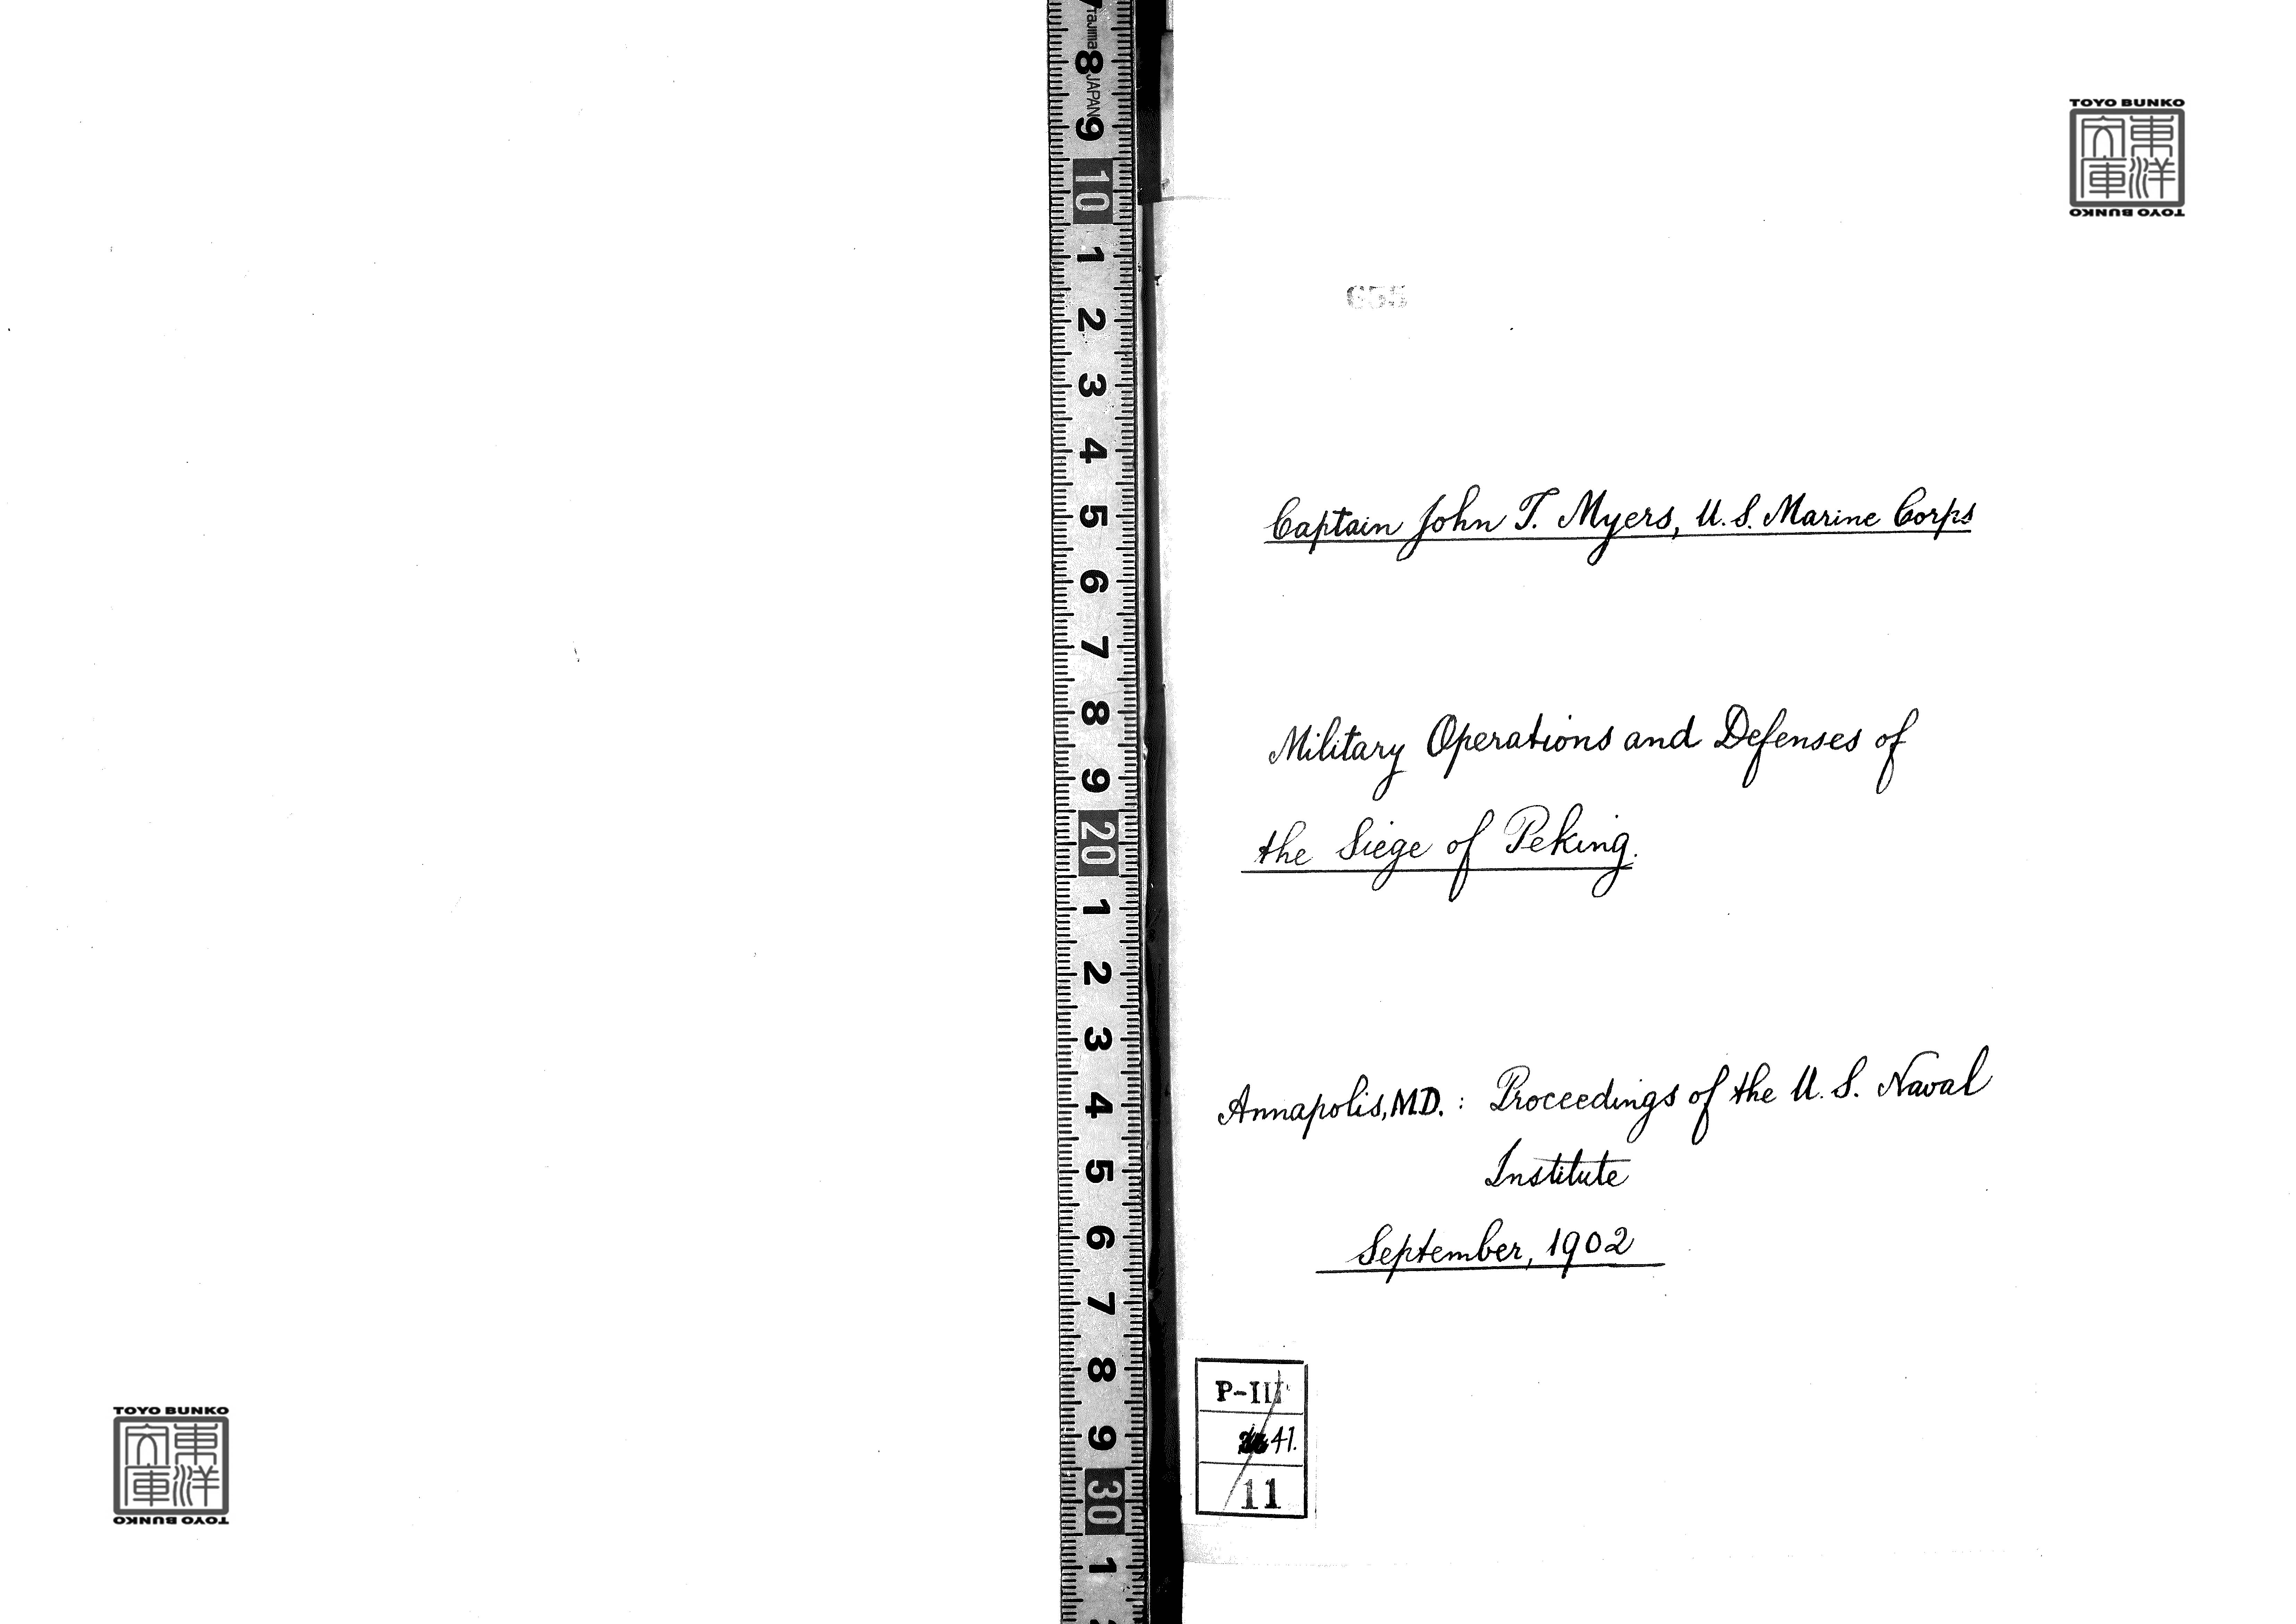 TOYO BUNKO
東洋
文庫
TOYO BUNKO
Captain John T. Myers, U.S. Marine Corps
Military Operations and Defenses of
the Siege of Peking.
Annapolis, MD. : Proceedings of the U. S. Naval
Institute
September, 1902
P-III
41.
11
Tajima JAPAN
7
8
9
10
1
2
3
4
5
6
7
8
9
20
1
2
3
4
5
6
7
8
9
30
1
TOYO BUNKO
東洋
文庫
TOYO BUNKO